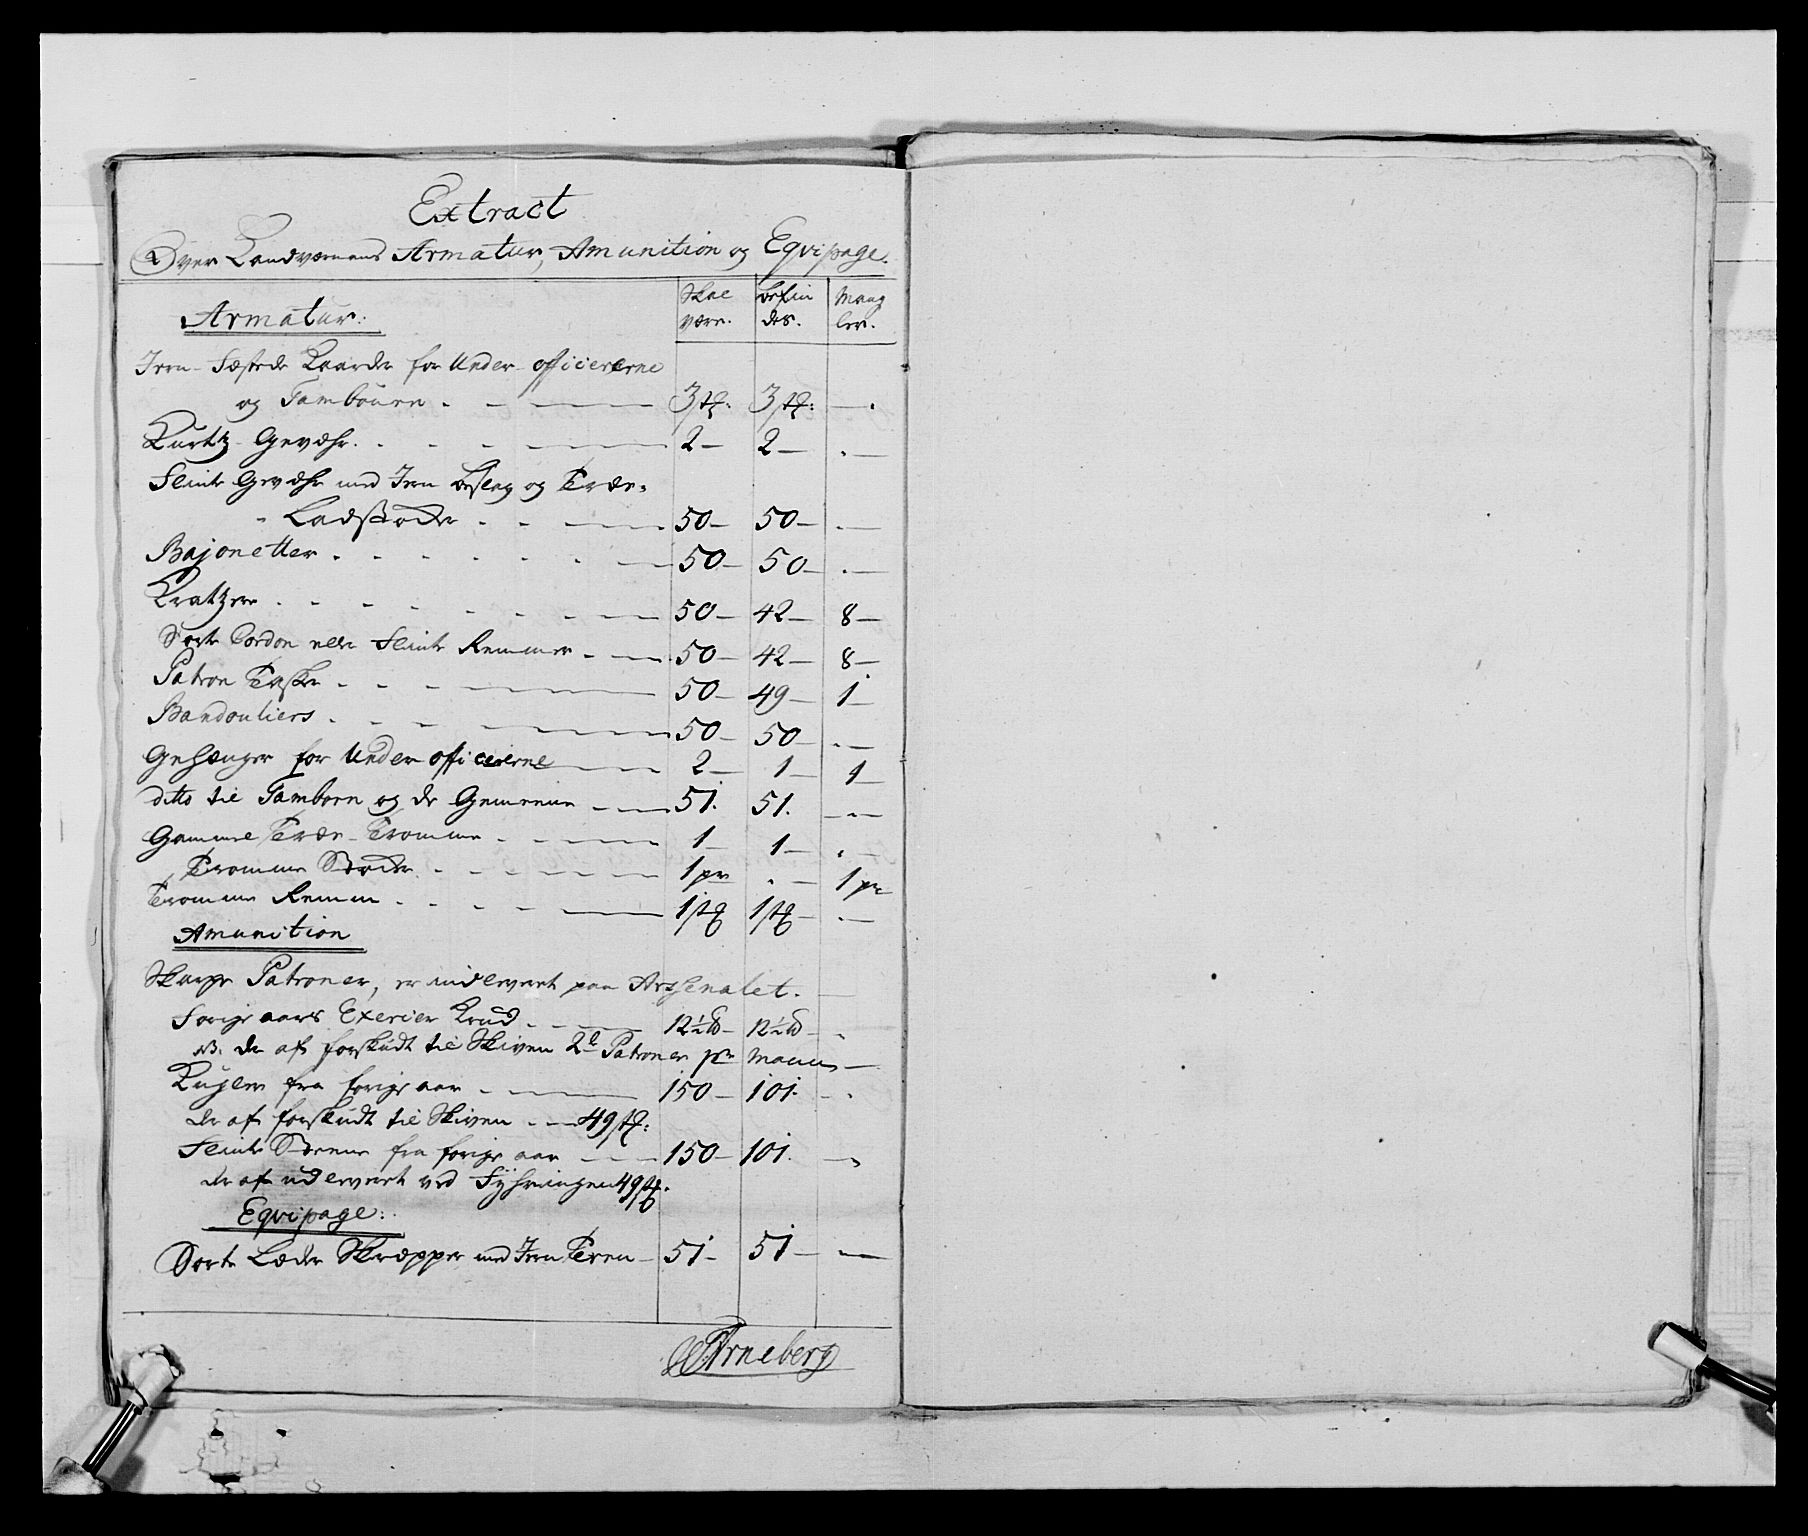 Extract
Over Landværnens Armatur, Amunition og Eqvipage.
Armatur: Skal være. befindes. Mangler.
Jern-Fæstede Kaarder for Under-officererne
og Tambouren . — — — 3 stk: 3 stk: —.
Kurtz-Gevæhr. . . — — 2— 2— .—
Flinte Gevæhr med Jern beslag og Træe-
Ladstocke . . — — 50— 50— .—
Bajonetter . . . . . . — 50— 50— .—
Kratzere . . . . . . — — 50— 42— 8—
Sorte Cordon eller Flinte Remmer — — 50— 42— 8—
Patron Taske . . . — — — 50— 49— 1—
Bandouliers . . . — — — 50— 50— .—
Gehænger for Under officererne — — 2— 1— 1—
ditto til Tamborn og de Gemeene — — 51. 51. — —
Gammel Træe-Tromme . . — — 1— 1— . —
Tromme Stocke . . — — — 1 pr . — 1 pr
Tromme Remm . . . . — 1 stk 1 stk— .—
Amunition
Skarpe Patroner, er indleveret paa Arsenalet. —
Forige aars Exercier Krud . — — 12½ ℔— 12½ ℔— .
NB. der af forskudt til Skiven 2de Patroner pr Mann —
Kugler fra forige aar . — — 150— 101. — .
der af forskudt til Skiven . — 49 stk:
Flinte Steene fra forige aar — — 150— 101. —
der af udleveret ved Fyhringen 49 stk.
Eqvipage:
Sorte Læder Skræpper med Jern Teen — 51— 51— —
Arneberg